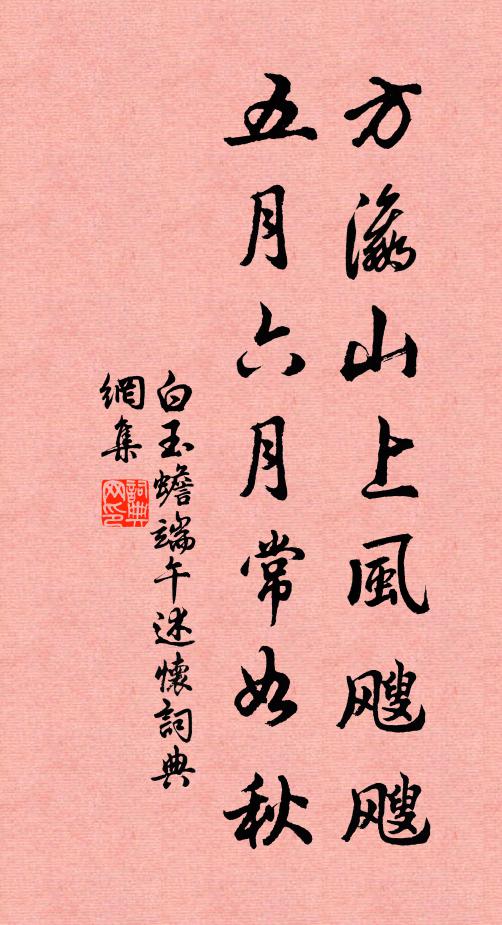 方瀛山上風颼颼
五月六月常如秋
白玉蟾端午述懷詞典
網集
詞典網印